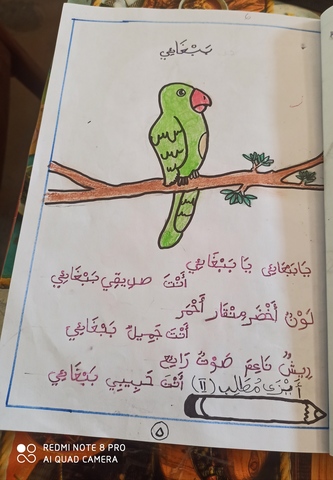 بَبْغَائِي
يَا بَبْغَائِي يَا بَبْغَائِي
أَنْتَ صَدِيقِي بَبْغَائِي
لَوْنٌ أَخْضَر مِنْقَار أَحْمَر
أَنْتَ جَمِيلٌ بَبْغَائِي
رِيشٌ نَاعِم صَوْتٌ رَائِع
أَنْتَ حَبِيبِي بَبْغَائِي
(11)
٥
REDMI NOTE 8 PRO
AI QUAD CAMERA